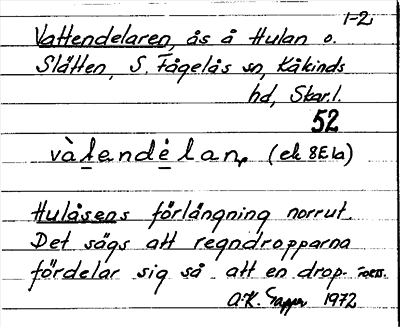 1-2
Vattendelaren, ås å Hulan o.
Slätten, S. Fågelås sn, Kåkinds
hd, Skar.l.
52
vàtendèlan, (ek 8E1a)
Hulåsens förlängning norrut.
Det sägs att regndropparna
fördelar sig så att en drop-
A-K. 1972